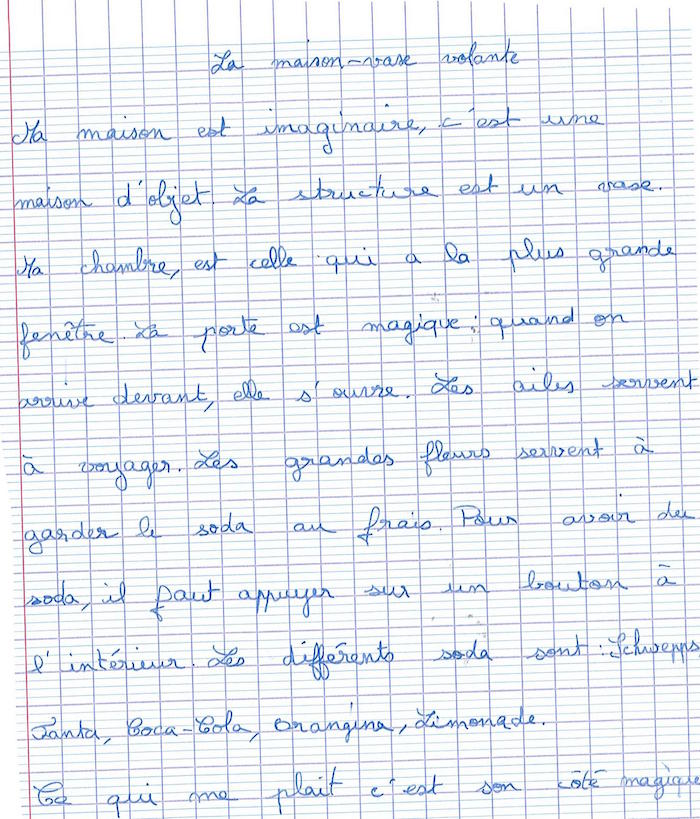 La maison-vase volante
Ma maison est imaginaire, c'est une
maison d'objet. La structure est un vase.
Ma chambre, est celle qui a la plus grande
fenêtre. La porte est magique : quand on
arrive devant, elle s'ouvre. Les ailes servent
à voyager. Les grandes fleurs servent à
garder le soda au frais. Pour avoir du
soda, il faut appuyer sur un bouton à
l'intérieur. Les différents soda sont : Schwepps
Fanta, Coca-Cola, Orangina, Limonade.
Ce qui me plait c'est son côté magique